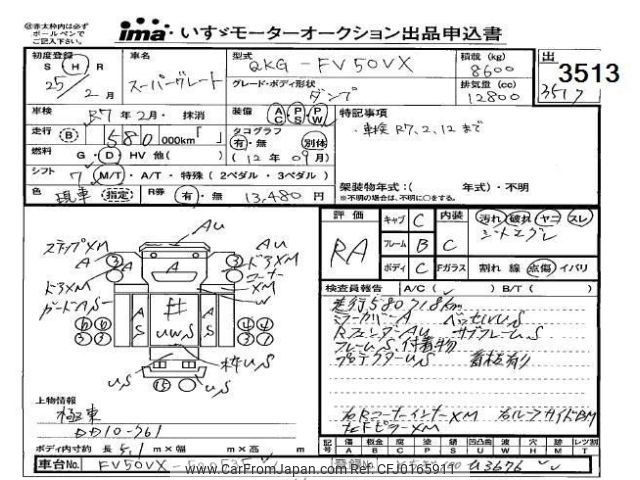 ㊟赤太枠内は必ず
ボールペンで
ご記入下さい。
ima・いすゞモーターオークション出品申込書
初度登録 S H R 25/2月
車名 スーパーグレート
型式 QKG-FV50VX
グレード・ボディ形状 ダンプ
積載 (kg) 8600
排気量 (cc) 12800
出 3513
3517
車検 R7年2月・抹消
装備 A/C P/S P/W
特記事項
・車検 R7,2,12まで
走行 B 580 000km「 」
タコグラフ 有・無 別体
(12年09月)
燃料 G・D・HV 他( )
シフト 7 M/T・A/T・特殊(2ペダル・3ペダル)
色 現車 指定 R券 有・無 13,480円
架装物年式:( 年式)・不明
※不明の場合は、不明に○をする。
評価 RA
キャブ C 内装 汚れ 破れ ヤニ スレ
フレーム B C シートエグレ
ボディ C Fガラス 割れ 線 点傷 イバリ
検査員報告 A/C( ✓ ) B/T( )
走行580718km
ミラーカバーA
RフェンダーAU サブフレームS
フレームS,付着物
プロテクターU,S 看板有り
右Rコーナーインナ-XM 右ルーフサイドBM
左FピラーXM
AU
ステップXM
AU
A
A
ドアXM
コーナーXM
ドアXM
ガードA,S
W
A S
井
UW,S
A S
枠U,S
U,S
U,S
⑮
上物情報
極東
DD10-761
ボディ内寸約 長5.1m×幅 m×高 m
記号 傷 A 板金 B 腐 C 塗 P 錆 S 凹凸曲 U 波 W 穴 H 跡 M レツ割 T
車台No. FV50VX-
登録No. U3676
www.CarFromJapan.com Ref: CFJ0165911